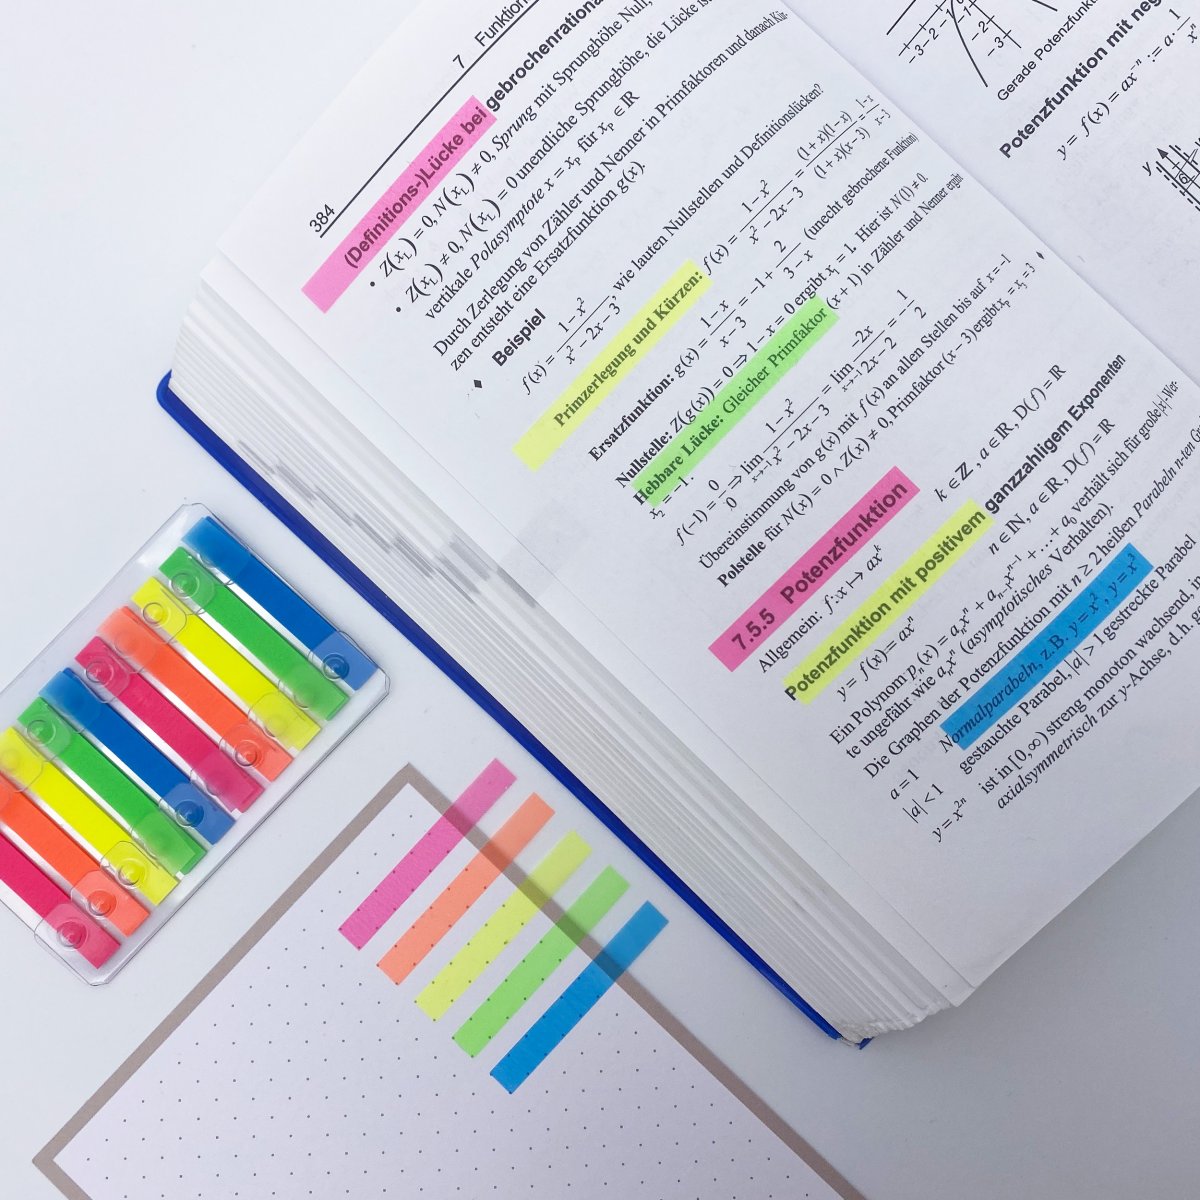 384
7 Funktion
(Definitions-)Lücke bei gebrochenrationa
• Z(x₁) = 0, N(x₁) ≠ 0, Sprung mit Sprunghöhe Null,
• Z(x₁) ≠ 0, N(x₁) = 0 unendliche Sprunghöhe, die Lücke is
vertikale Polasymptote x = xₚ für xₚ ∈ ℝ
Durch Zerlegung von Zähler und Nenner in Primfaktoren und danach Kür-
zen entsteht eine Ersatzfunktion g(x).
♦ Beispiel
f(x) = (1 − x²)/(x² − 2x − 3), wie lauten Nullstellen und Definitionslücken?
Primzerlegung und Kürzen: f(x) = (1 − x²)/(x² − 2x − 3) = ((1 + x)(1 − x))/((1 + x)(x − 3)) = (1 − x)/(x − 3)
Ersatzfunktion: g(x) = (1 − x)/(x − 3) = −1 + 2/(3 − x) (unecht gebrochene Funktion)
Nullstelle: Z(g(x)) = 0 ⇒ 1 − x = 0 ergibt x₁ = 1. Hier ist N(1) ≠ 0.
Hebbare Lücke: Gleicher Primfaktor (x + 1) in Zähler und Nenner ergibt
x₂ = −1.
f(−1) = 0/0 ⇒ lim x→−1 (1 − x²)/(x² − 2x − 3) = lim x→−1 (−2x)/(2x − 2) = −1/2
Übereinstimmung von g(x) mit f(x) an allen Stellen bis auf x = −1
Polstelle für N(x) = 0 ∧ Z(x) ≠ 0, Primfaktor (x − 3) ergibt xₚ = x₃ = 3 ♦
7.5.5 Potenzfunktion
Allgemein: f: x ↦ axᵏ k ∈ ℤ, a ∈ ℝ, D(f) = ℝ
Potenzfunktion mit positivem ganzzahligem Exponenten
y = f(x) = axⁿ n ∈ ℕ, a ∈ ℝ, D(f) = ℝ
Ein Polynom pₙ(x) = aₙxⁿ + aₙ₋₁xⁿ⁻¹ + … + a₀ verhält sich für große |x|-Wer-
te ungefähr wie aₙxⁿ (asymptotisches Verhalten).
Die Graphen der Potenzfunktion mit n ≥ 2 heißen Parabeln n-ten
Normalparabeln, z.B. y = x², y = x³
a = 1
|a| < 1 gestauchte Parabel, |a| > 1 gestreckte Parabel
y = x²ⁿ ist in [0, ∞) streng monoton wachsend, in
axialsymmetrisch zur y-Achse, d.h. g
−3 −2 −1
−2
−3
Gerade Potenzfunk
Potenzfunktion mit neg
y = f(x) = ax⁻ⁿ := a · 1/xⁿ
y